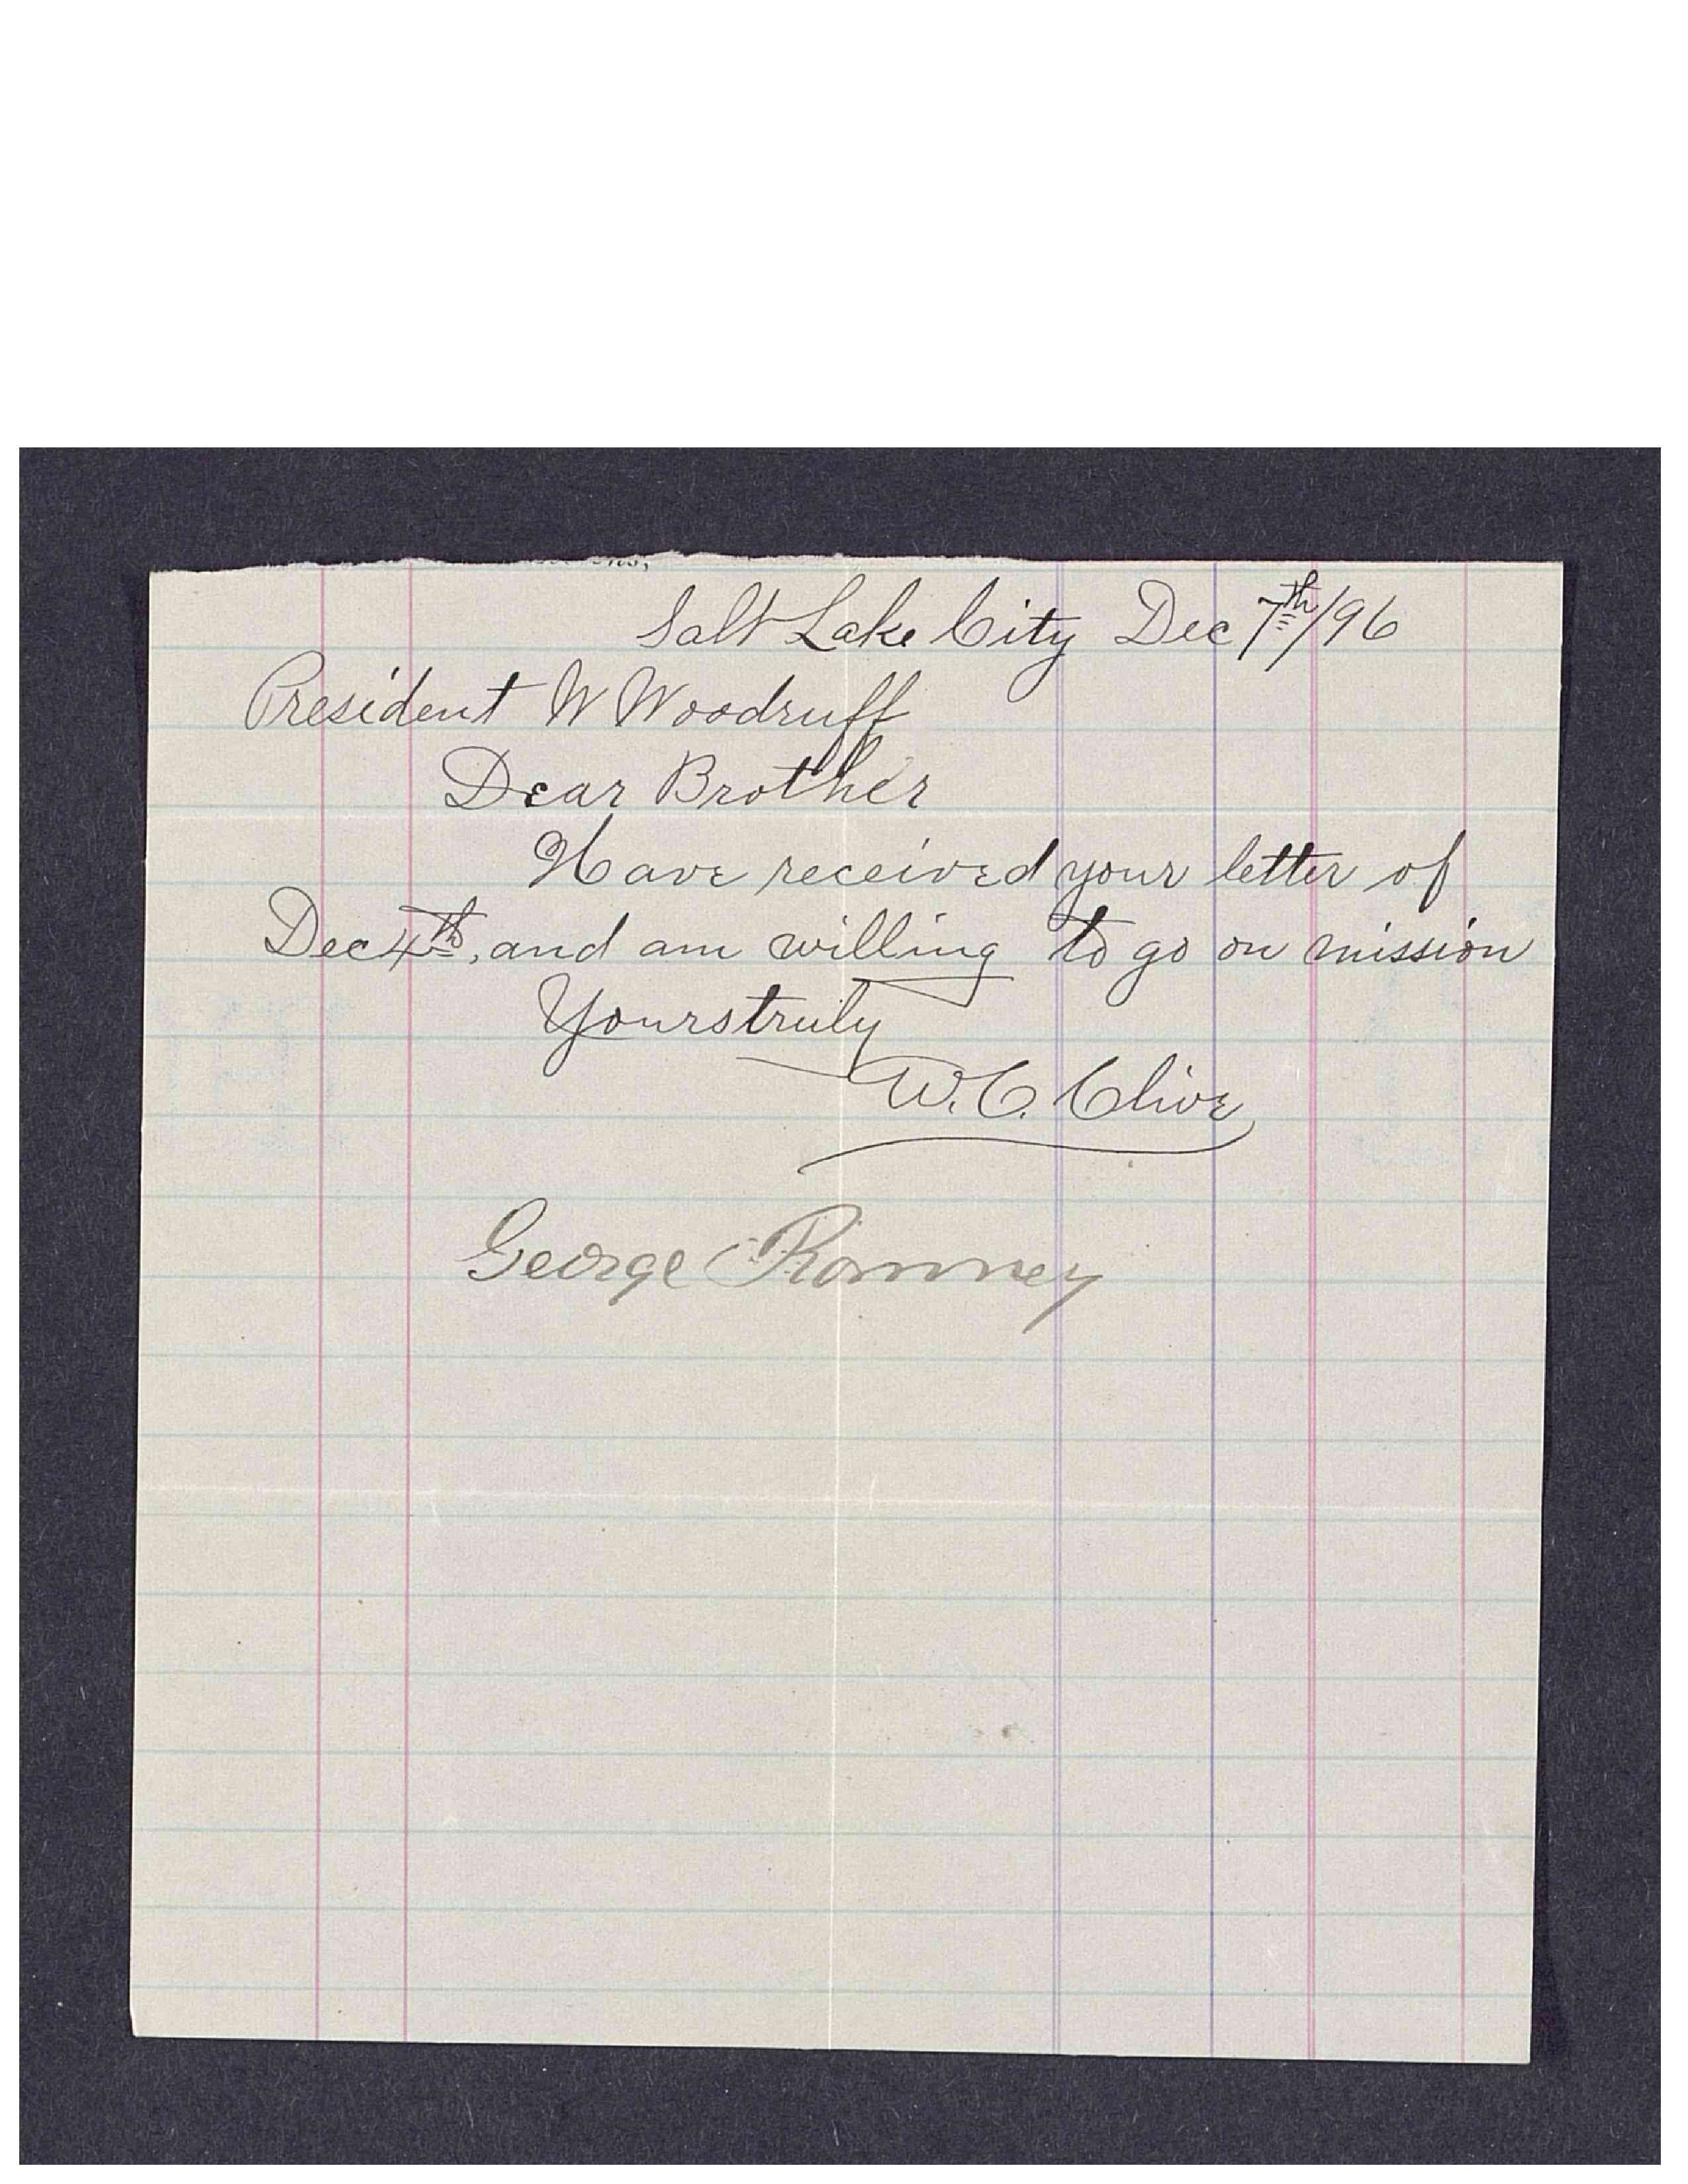 Salt Lake City Dec 7th/96
President W Woodruff
Dear Brother
Have received your letter of
Dec 4th, and am willing to go on mission
Yours truly
W. C. Clive
George Romney